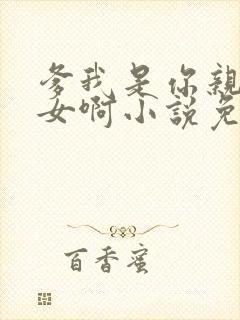 爹我是你親
女啊小說免
百香蜜